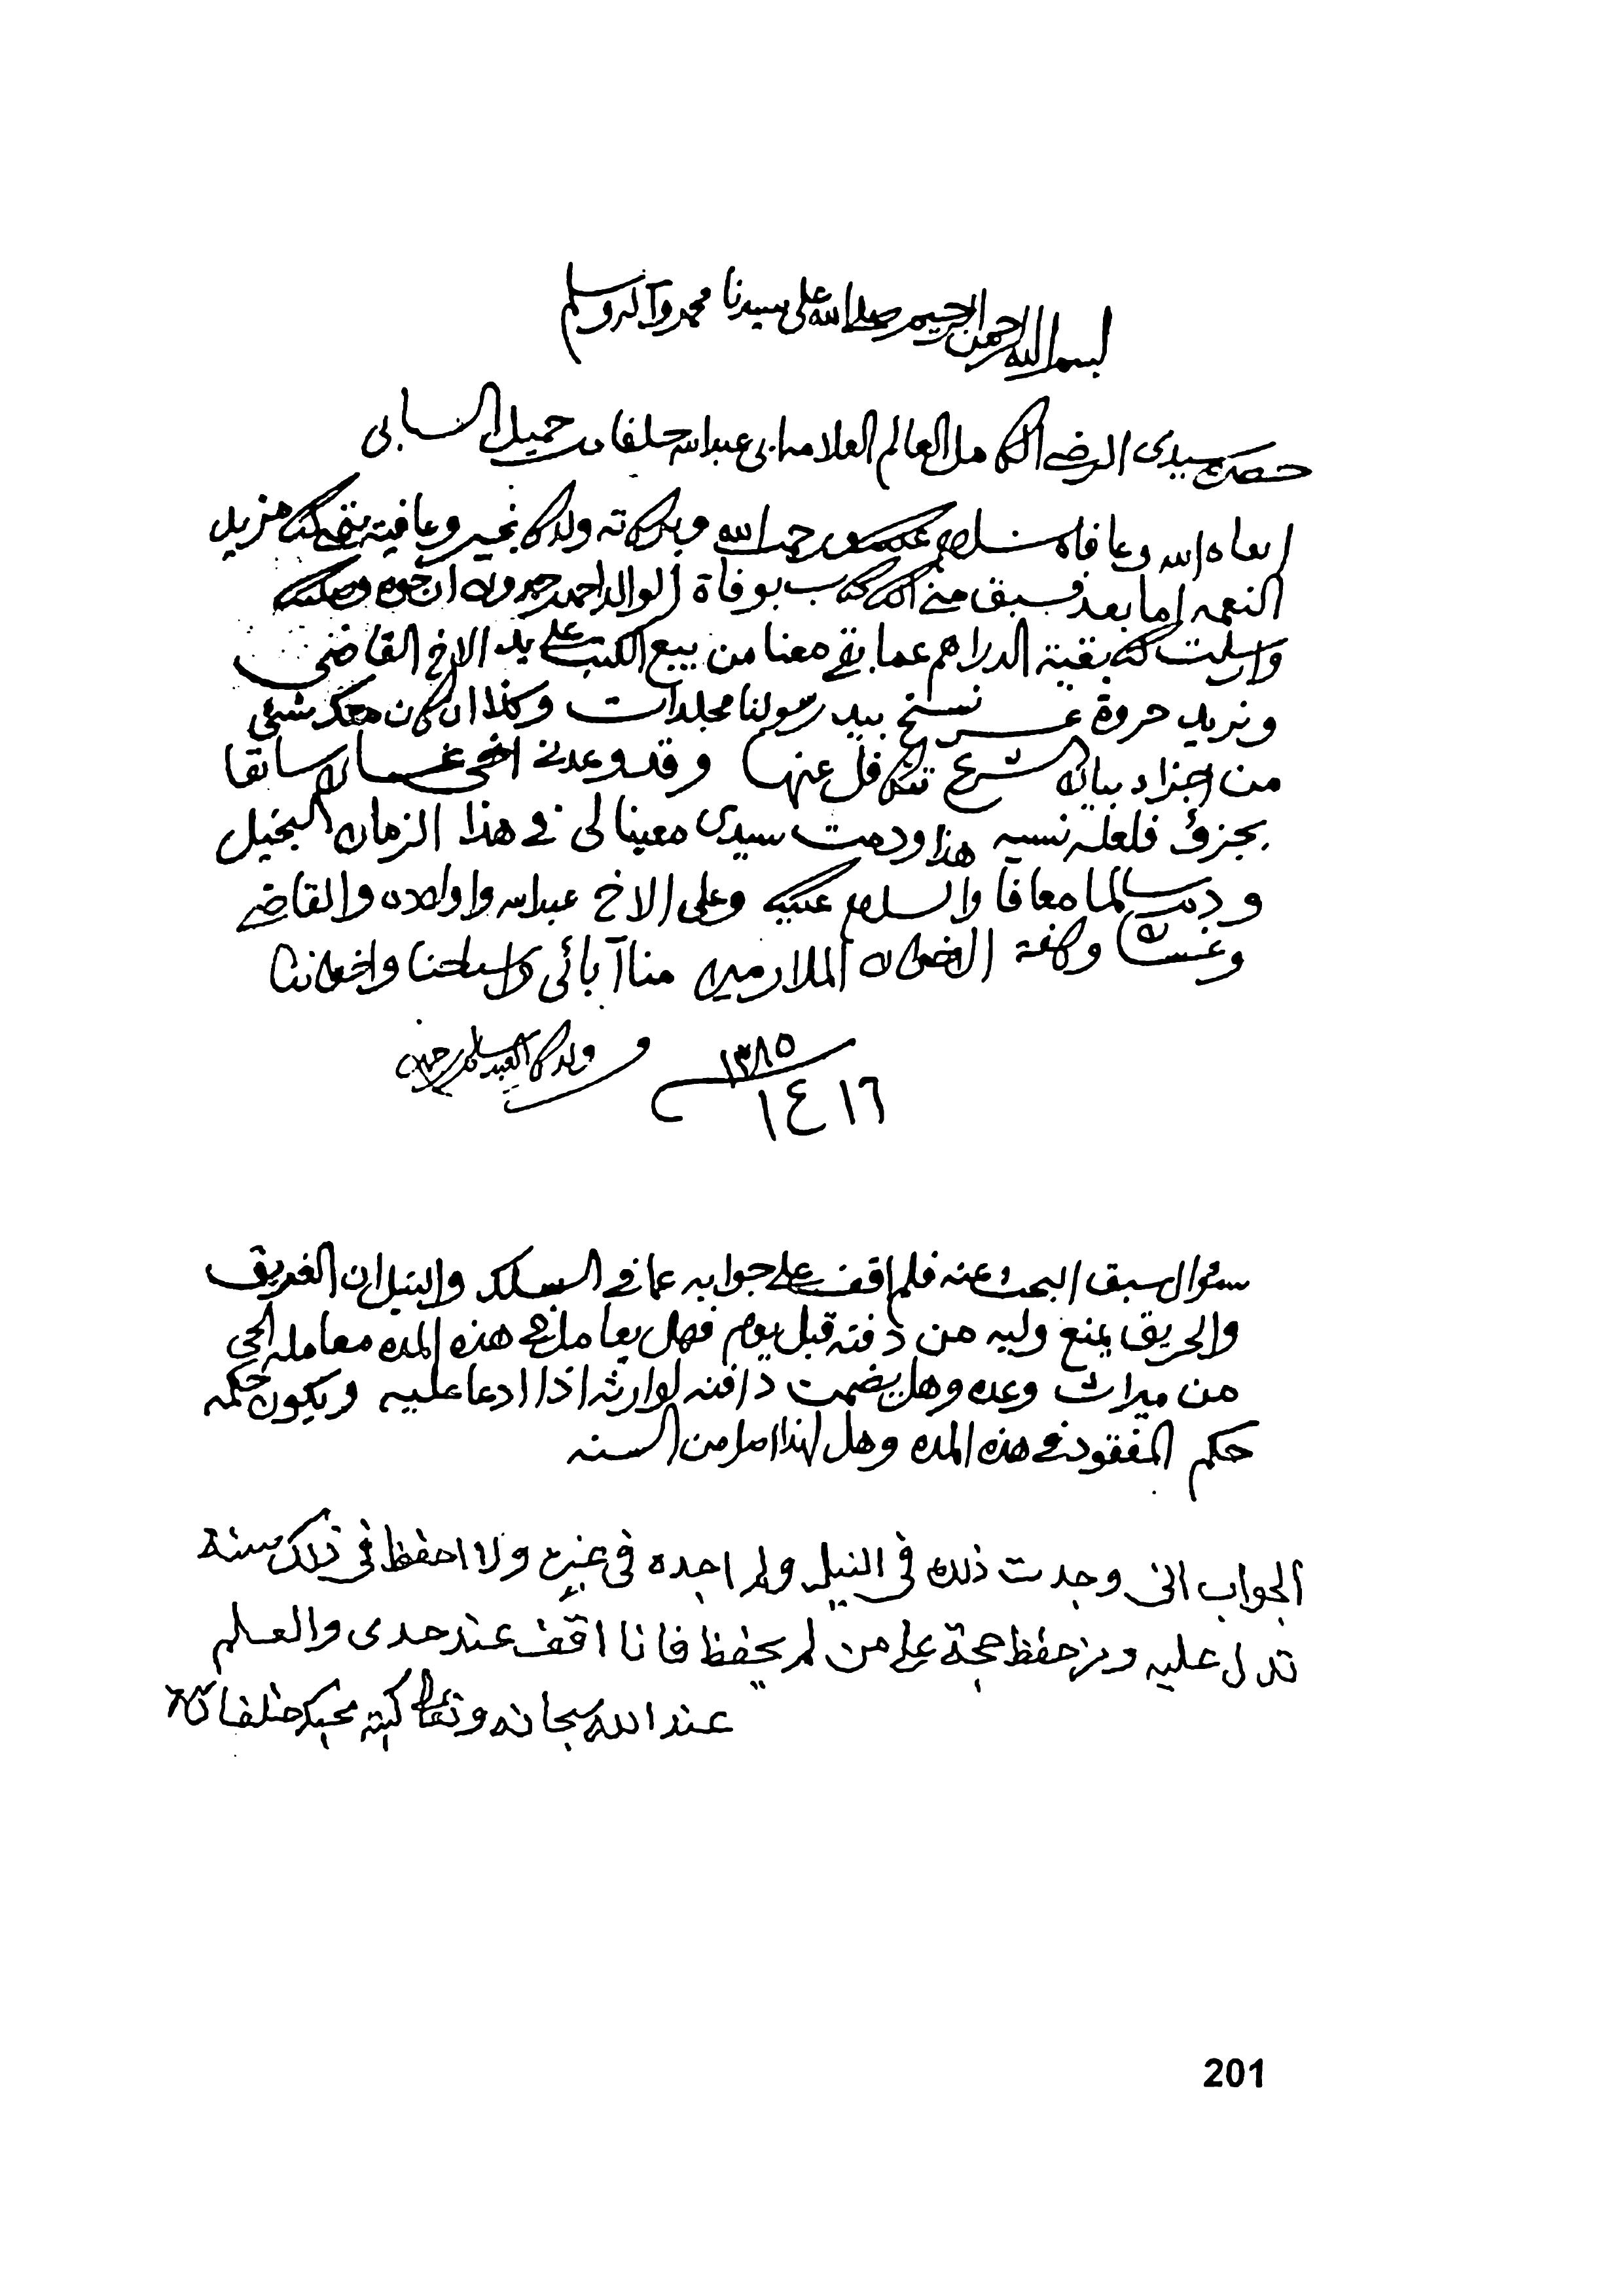 بسم الله الرحمن الرحيم صلى الله على سيدنا محمد وآله وسلم
حضرة سيدي الرضي الكامل العالم العلامه ابي عبدالله خلفان بن جميل السيابي
ابقاه الله وعافاه سلام عليكم ورحمة الله وبركاته ولدك بخير وعافية بقي لك مزيد
النعمه اما بعد فسبق مني لك كتاب بوفاة الوالد احمد بن حمدون ارجوه وصلك
وارسلت لك بقية الدراهم عما بقي معنا من بيع الكتب على يد الاخ القاضي
ونريد حروة عشر نسخ بيد رسولنا مجلدات وكذا ان كان معك شيئ
من اجزاء بيان الشرع تتفضل عنها وقد وعدني اخي غسان لا سابقا
بجزؤ فلعله نسيه هذا ودمت سيدي معينا لي في هذا الزمان البخيل
ودمت سالما معافا والسلام عليك وعلى الاخ عبدالله واولاده والقاضي
وغسان وكافة الاخوان الملازمين منا آبائي واشياخنا واخواننا
١٣٨٥
١٦ ٤ ١
و ولدك العبد سالم بن حمد
سئوال سبق البحث عنه فلم اقف على جوابه عما في السلك والنيل ان الغريق
والحريق يمنع وليه من دفنه قبل يوم فهل يعامل في هذه المده معاملة الحي
من ميراث وعده وهل يضمن دافنه لوارثه اذا ادعا عليه ويكون حكمه
حكم المفقود في هذه المده وهل لهذا اصل من السنه
الجواب اني وجدت ذلك في النيل ولم اجده في غيره ولا احفظ في ذلك سنة
تدل عليه ومن حفظ حجة على من لم يحفظ فانا اقف عند حدي والعلم
عند الله سبحانه وتعالى كتبه محبكم خلفان
201